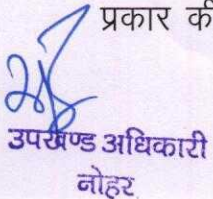 प्रकार की
उपखण्ड अधिकारी
नोहर